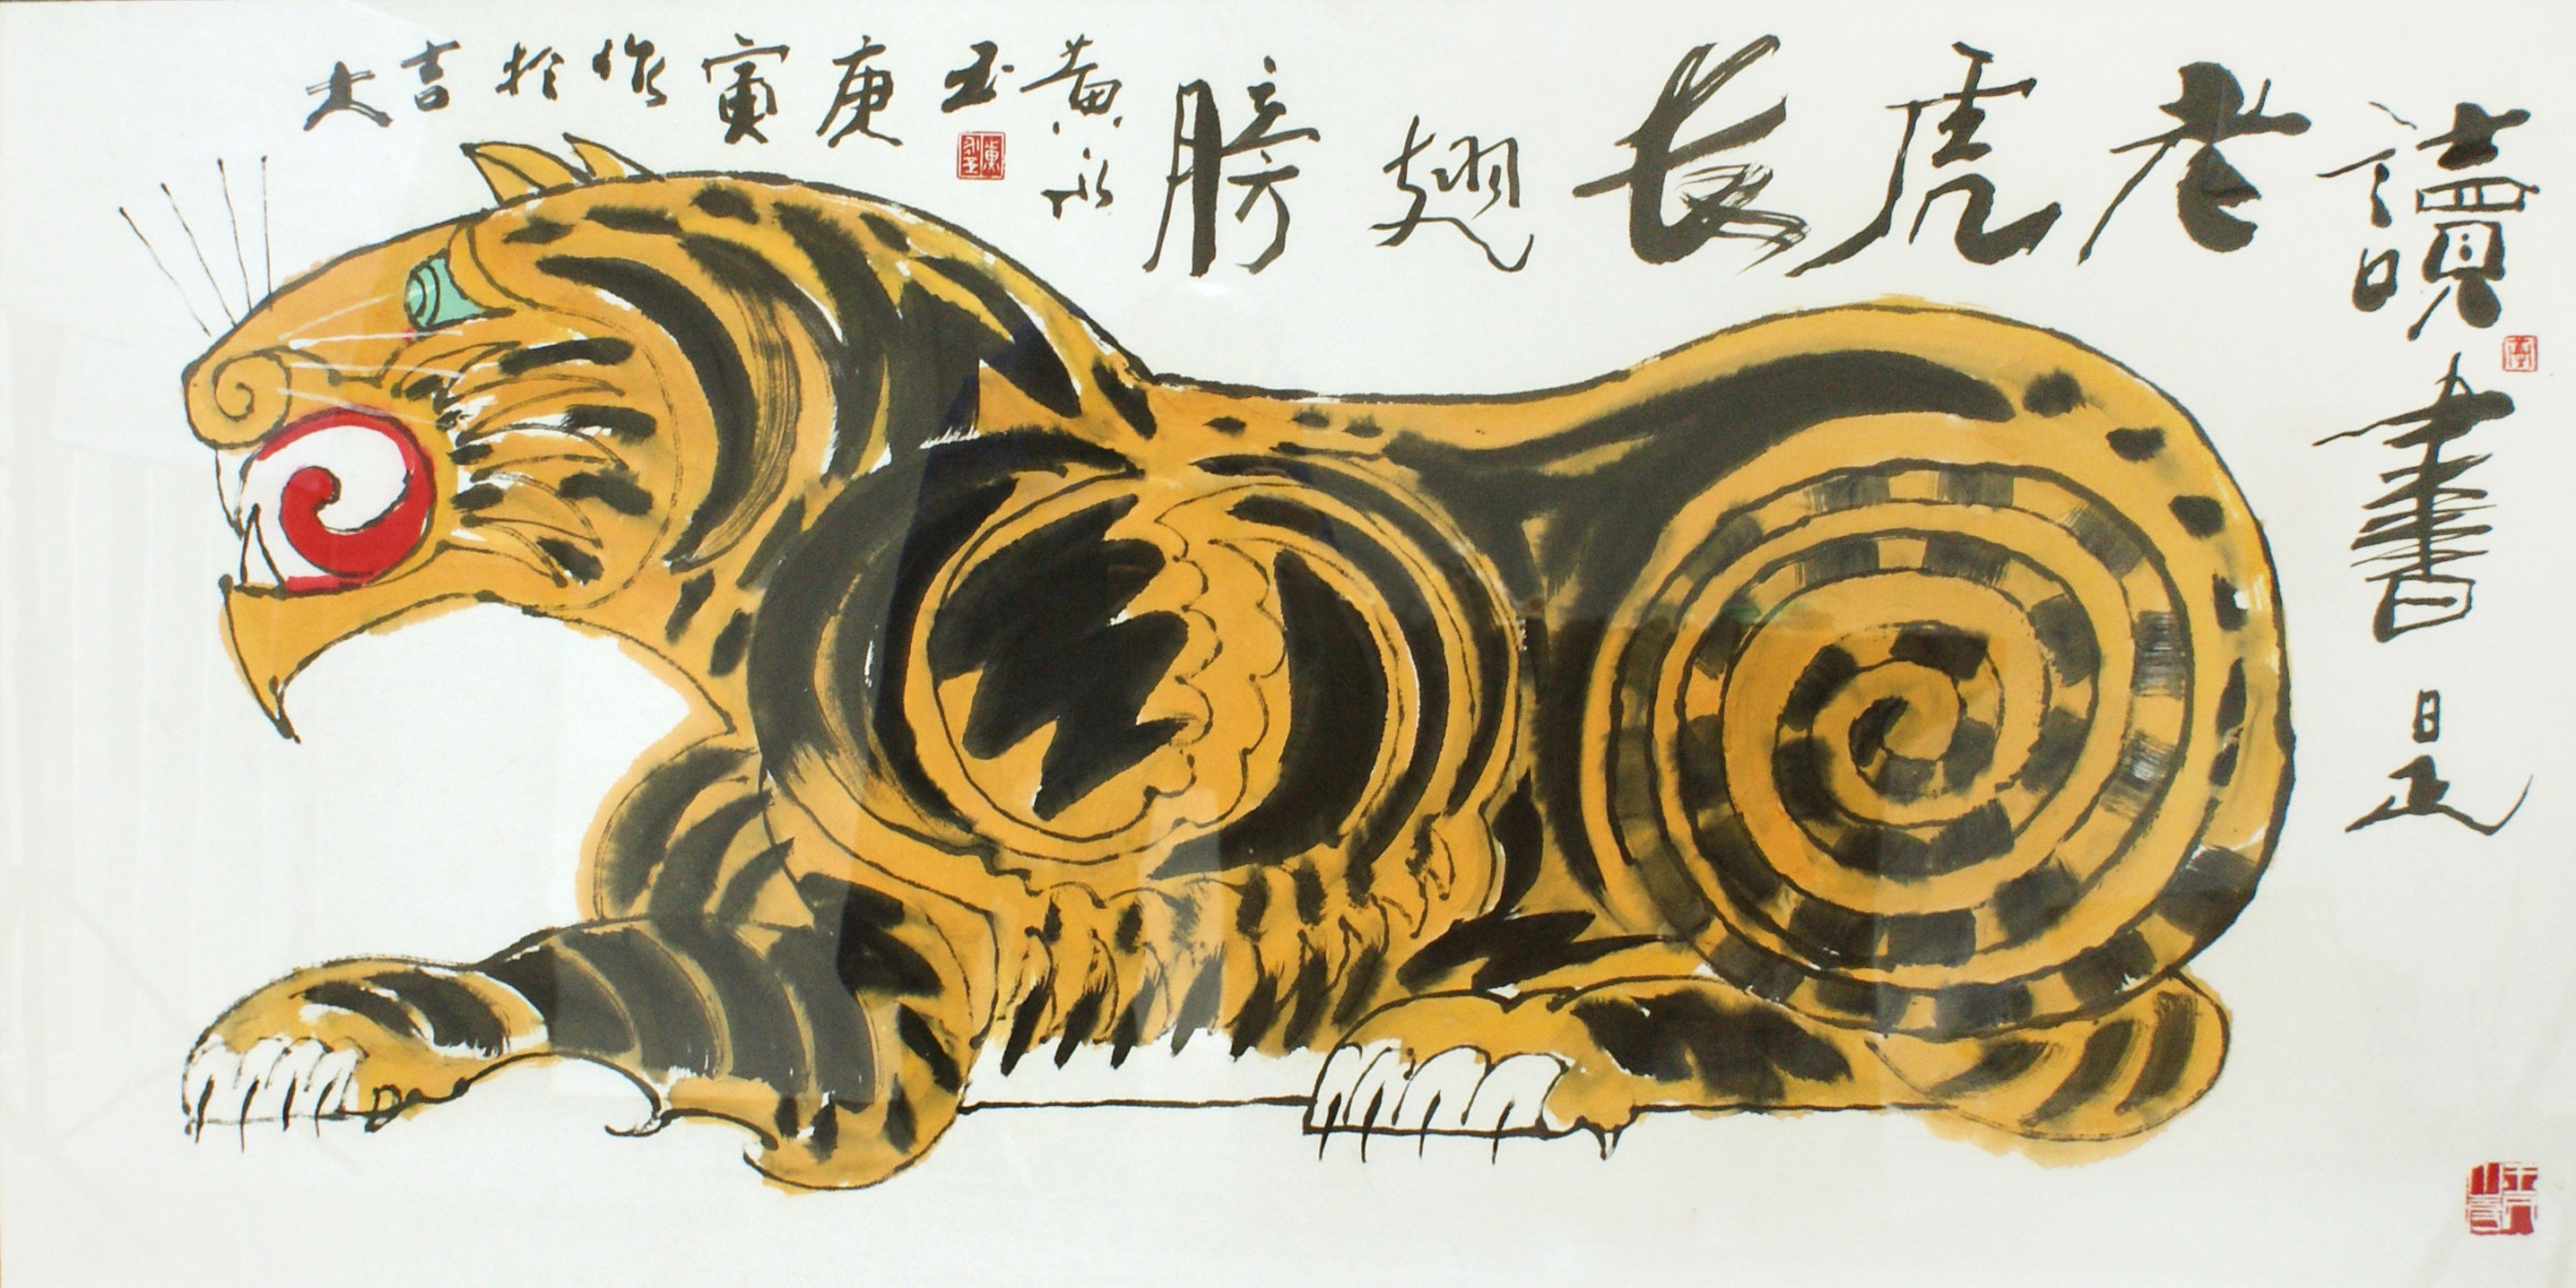 讀書是
老虎长翅膀
黄永玉庚寅作於吉大
黄永玉